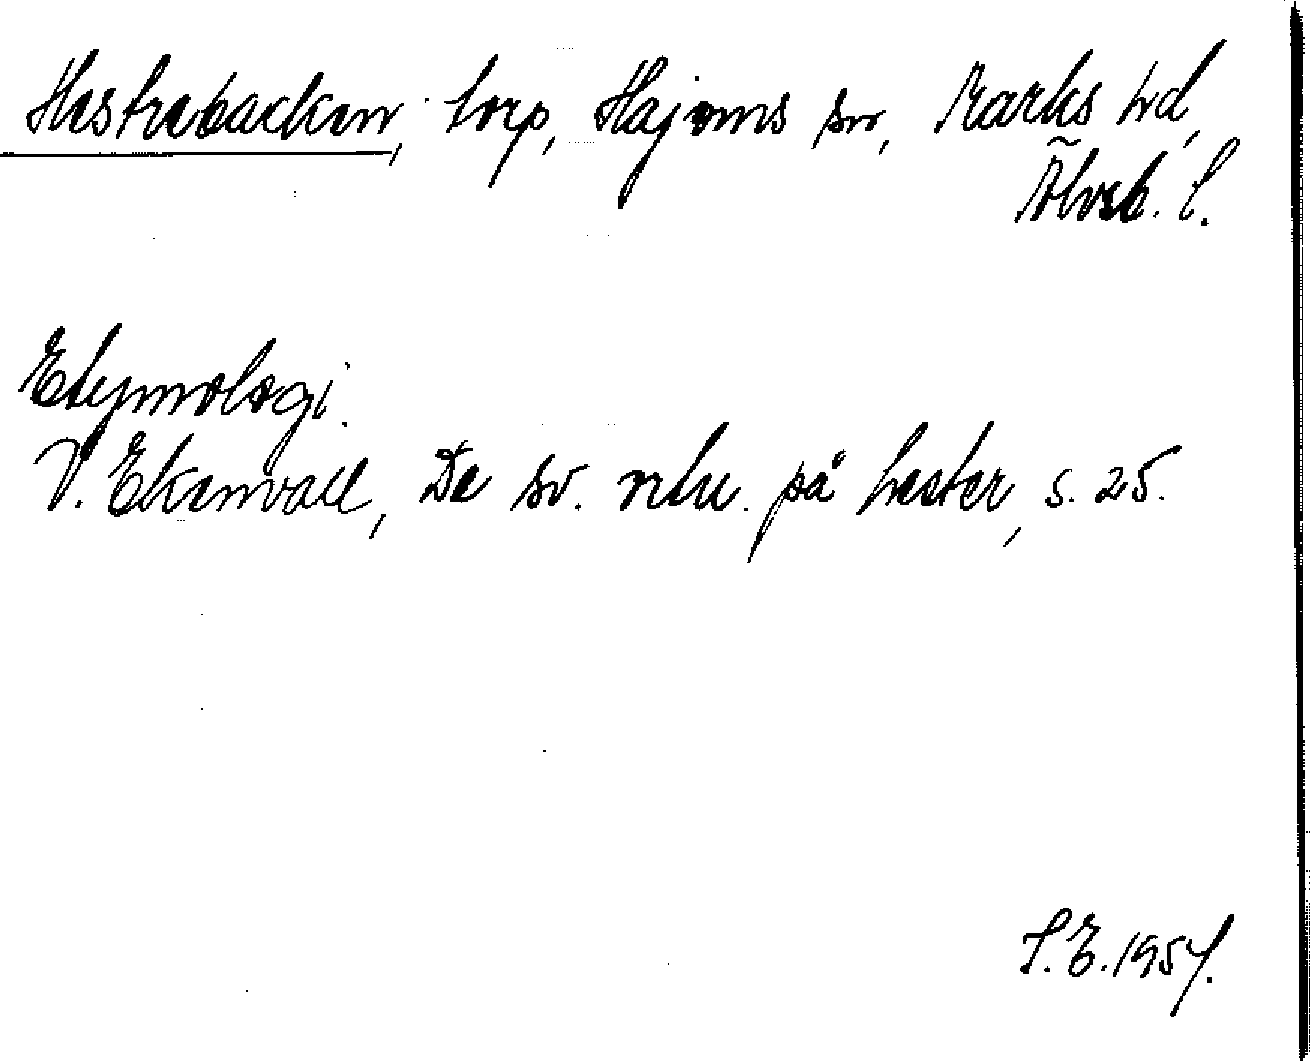 Hestrabacken, torp, Hajoms sn, Marks hd,
Älvsb. l.
Etymologi.
V. Ekenvall, De sv. rebu. på hester, s. 25.
S. E. 1957.